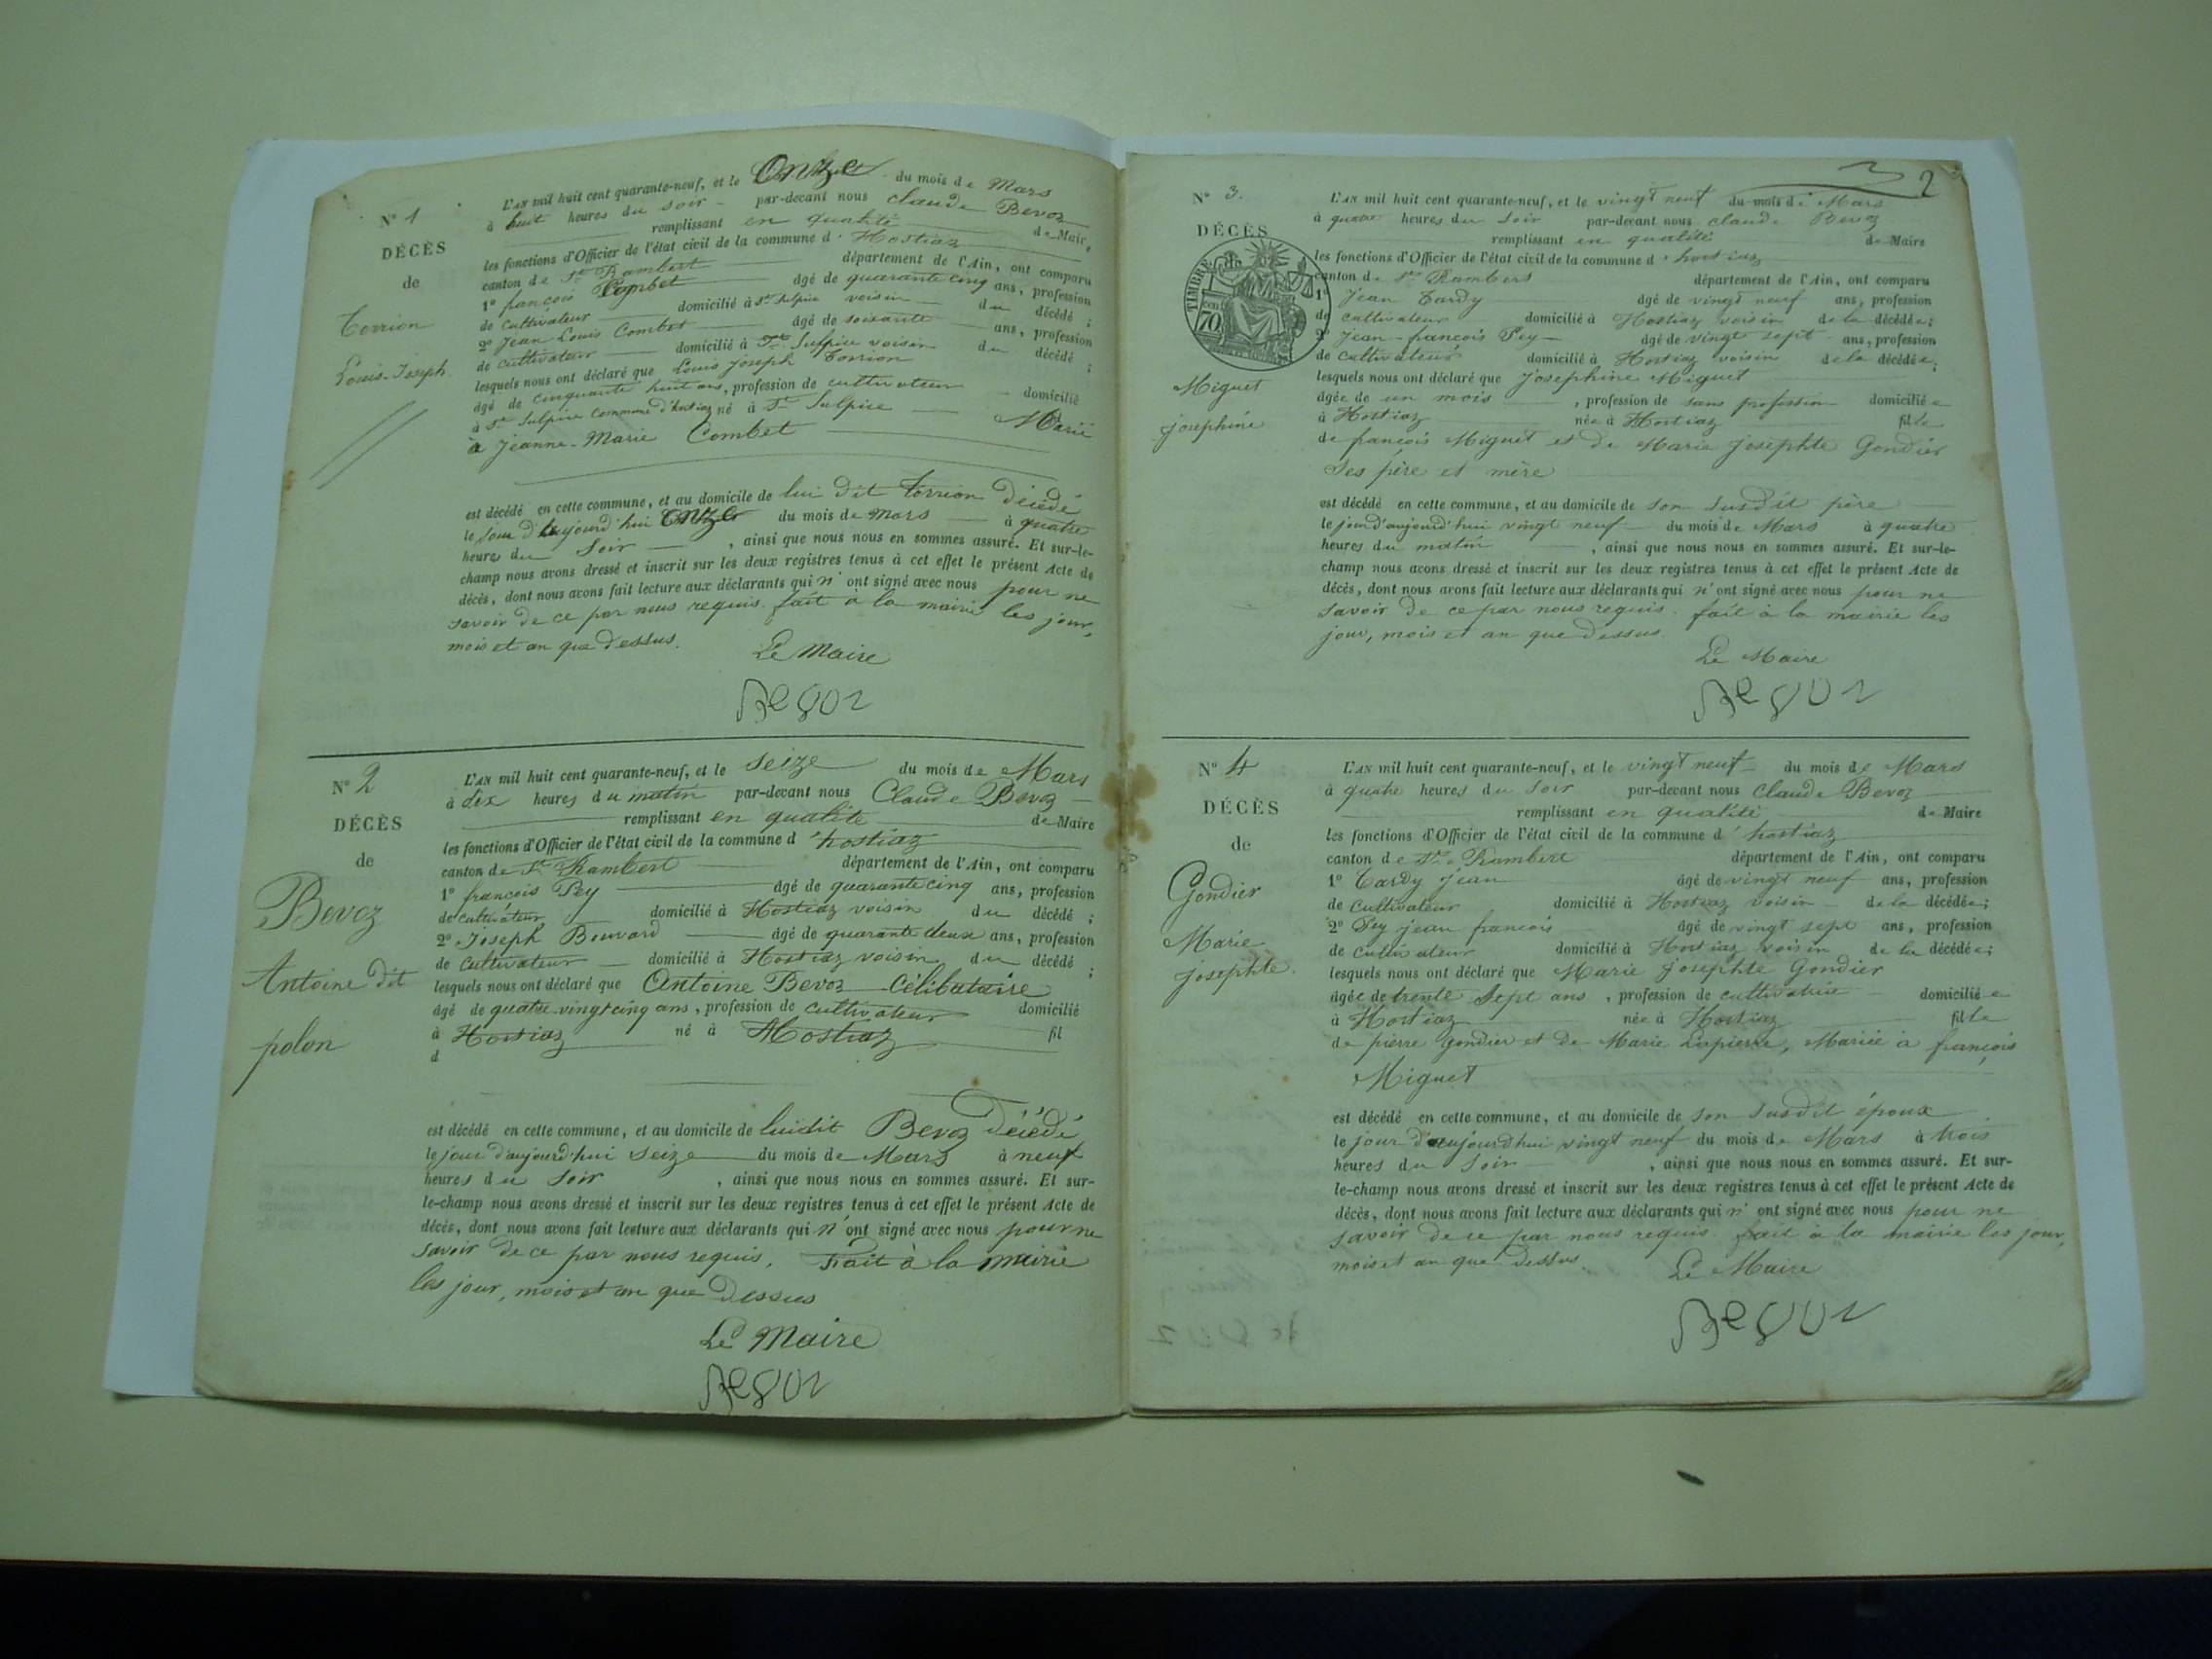 N° 1
DÉCÈS
de
Torrion
Louis-Joseph
L'AN mil huit cent quarante-neuf, et le Onze du mois de Mars
à huit heures du soir par-devant nous claude Bevoz
remplissant en qualité de Maire
les fonctions d'Officier de l'état civil de la commune d' Hostiaz
canton de St Rambert département de l'Ain, ont comparu
1° françois Combet âgé de quarante cinq ans, profession
de cultivateur domicilié à St Sulpice voisin du décédé ;
2° Jean Louis Combet âgé de soixante ans, profession
de cultivateur domicilié à St Sulpice voisin du décédé ;
lesquels nous ont déclaré que Louis joseph Torrion
âgé de cinquante huit ans, profession de cultivateur domicilié
à St Sulpice commune d'hostiaz né à St Sulpice Marié
à Jeanne-Marie Combet
est décédé en cette commune, et au domicile de lui dit torrion décédé
le jour d'aujourd'hui onze du mois de Mars à quatre
heures du Soir , ainsi que nous nous en sommes assuré. Et sur-le-
champ nous avons dressé et inscrit sur les deux registres tenus à cet effet le présent Acte de
décès, dont nous avons fait lecture aux déclarants qui n'ont signé avec nous pour ne
savoir de ce par nous requis. fait à la mairie les jour,
mois et an que dessus.
Le Maire
Bevoz
N° 2
DÉCÈS
de
Bevoz
Antoine dit
polon
L'AN mil huit cent quarante-neuf, et le seize du mois de Mars
à dix heures du matin par-devant nous Claude Bevoz
remplissant en qualité de Maire
les fonctions d'Officier de l'état civil de la commune d'hostiaz
canton de St Rambert département de l'Ain, ont comparu
1° françois Pey âgé de quarante cinq ans, profession
de cultivateur domicilié à Hostiaz voisin du décédé ;
2° Joseph Bouvard âgé de quarante deux ans, profession
de cultivateur domicilié à Hostiaz voisin du décédé ;
lesquels nous ont déclaré que Antoine Bevoz Célibataire
âgé de quatre-vingt cinq ans, profession de cultivateur domicilié
à Hostiaz né à Hostiaz fil
d
est décédé en cette commune, et au domicile de luidit Bevoz décédé
le jour d'aujourd'hui seize du mois de Mars à neuf
heures du Soir , ainsi que nous nous en sommes assuré. Et sur-
le-champ nous avons dressé et inscrit sur les deux registres tenus à cet effet le présent Acte de
décès, dont nous avons fait lecture aux déclarants qui n'ont signé avec nous pour ne
savoir de ce par nous requis. Fait à la mairie
les jour, mois et an que dessus
Le Maire
Bevoz
3 2
N° 3.
DÉCÈS
TIMBRE
70
Miguet
josephine
L'AN mil huit cent quarante-neuf, et le vingt neuf du mois de Mars
à quatre heures du soir par-devant nous claude Bevoz
remplissant en qualité de Maire
les fonctions d'Officier de l'état civil de la commune d'hostiaz
canton de St Rambert département de l'Ain, ont comparu
1° Jean Tardy âgé de vingt neuf ans, profession
de cultivateur domicilié à Hostiaz voisin de la décédée ;
2° Jean-françois Pey âgé de vingt sept ans, profession
de cultivateur domicilié à Hostiaz voisin de la décédée ;
lesquels nous ont déclaré que josephine Miguet
âgée de un mois , profession de sans profession domiciliée
à Hostiaz née à Hostiaz fille
de françois Miguet et de Marie josephte Gondier
ses père et mère
est décédé en cette commune, et au domicile de son susdit père
le jour d'aujourd'hui vingt neuf du mois de Mars à quatre
heures du matin , ainsi que nous nous en sommes assuré. Et sur-le-
champ nous avons dressé et inscrit sur les deux registres tenus à cet effet le présent Acte de
décès, dont nous avons fait lecture aux déclarants qui n'ont signé avec nous pour ne
savoir de ce par nous requis. fait à la mairie les
jour, mois et an que dessus
Le Maire
Bevoz
N° 4
DÉCÈS
de
Gondier
Marie
josephte.
L'AN mil huit cent quarante-neuf, et le vingt neuf du mois de Mars
à quatre heures du soir par-devant nous Claude Bevoz
remplissant en qualité de Maire
les fonctions d'Officier de l'état civil de la commune d'hostiaz
canton de St Rambert département de l'Ain, ont comparu
1° Tardy jean âgé de vingt neuf ans, profession
de cultivateur domicilié à Hostiaz voisin de la décédée ;
2° Pey jean françois âgé de vingt sept ans, profession
de cultivateur domicilié à Hostiaz voisin de la décédée ;
lesquels nous ont déclaré que Marie josephte Gondier
âgée de trente sept ans , profession de cultivatrice domiciliée
à Hostiaz née à Hostiaz fille
de pierre gondier et de Marie Lapierre, Mariée à françois
Miguet
est décédé en cette commune, et au domicile de son susdit époux
le jour d'aujourd'hui vingt neuf du mois de Mars à trois
heures du soir , ainsi que nous nous en sommes assuré. Et sur-
le-champ nous avons dressé et inscrit sur les deux registres tenus à cet effet le présent Acte de
décès, dont nous avons fait lecture aux déclarants qui n'ont signé avec nous pour ne
savoir de ce par nous requis. fait à la mairie les jour,
mois et an que dessus.
Le Maire
Bevoz